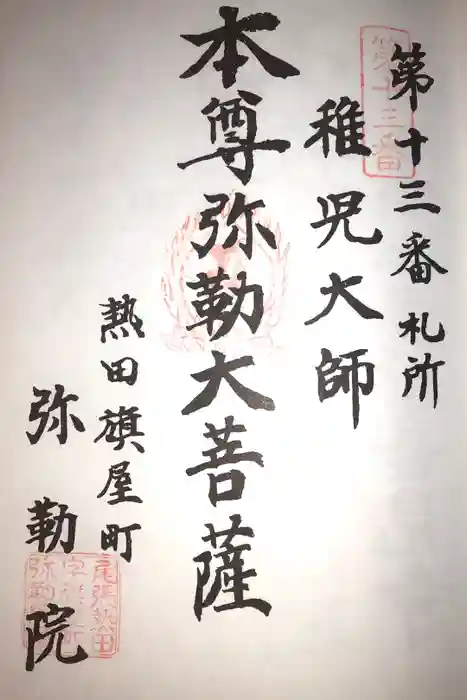 第十三番札所
第十三番
稚児大師
本尊弥勒大菩薩
熱田旗屋町
弥勒院
尾張熱田